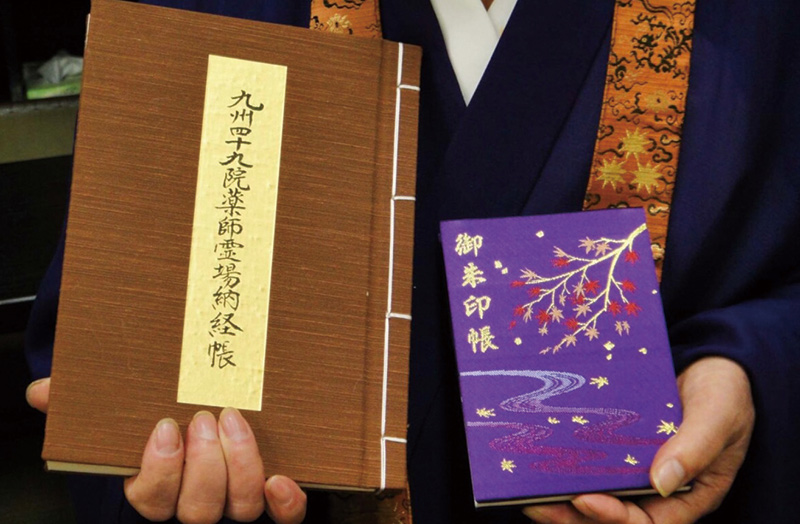 九州四十九院薬師霊場納経帳
御朱印帳